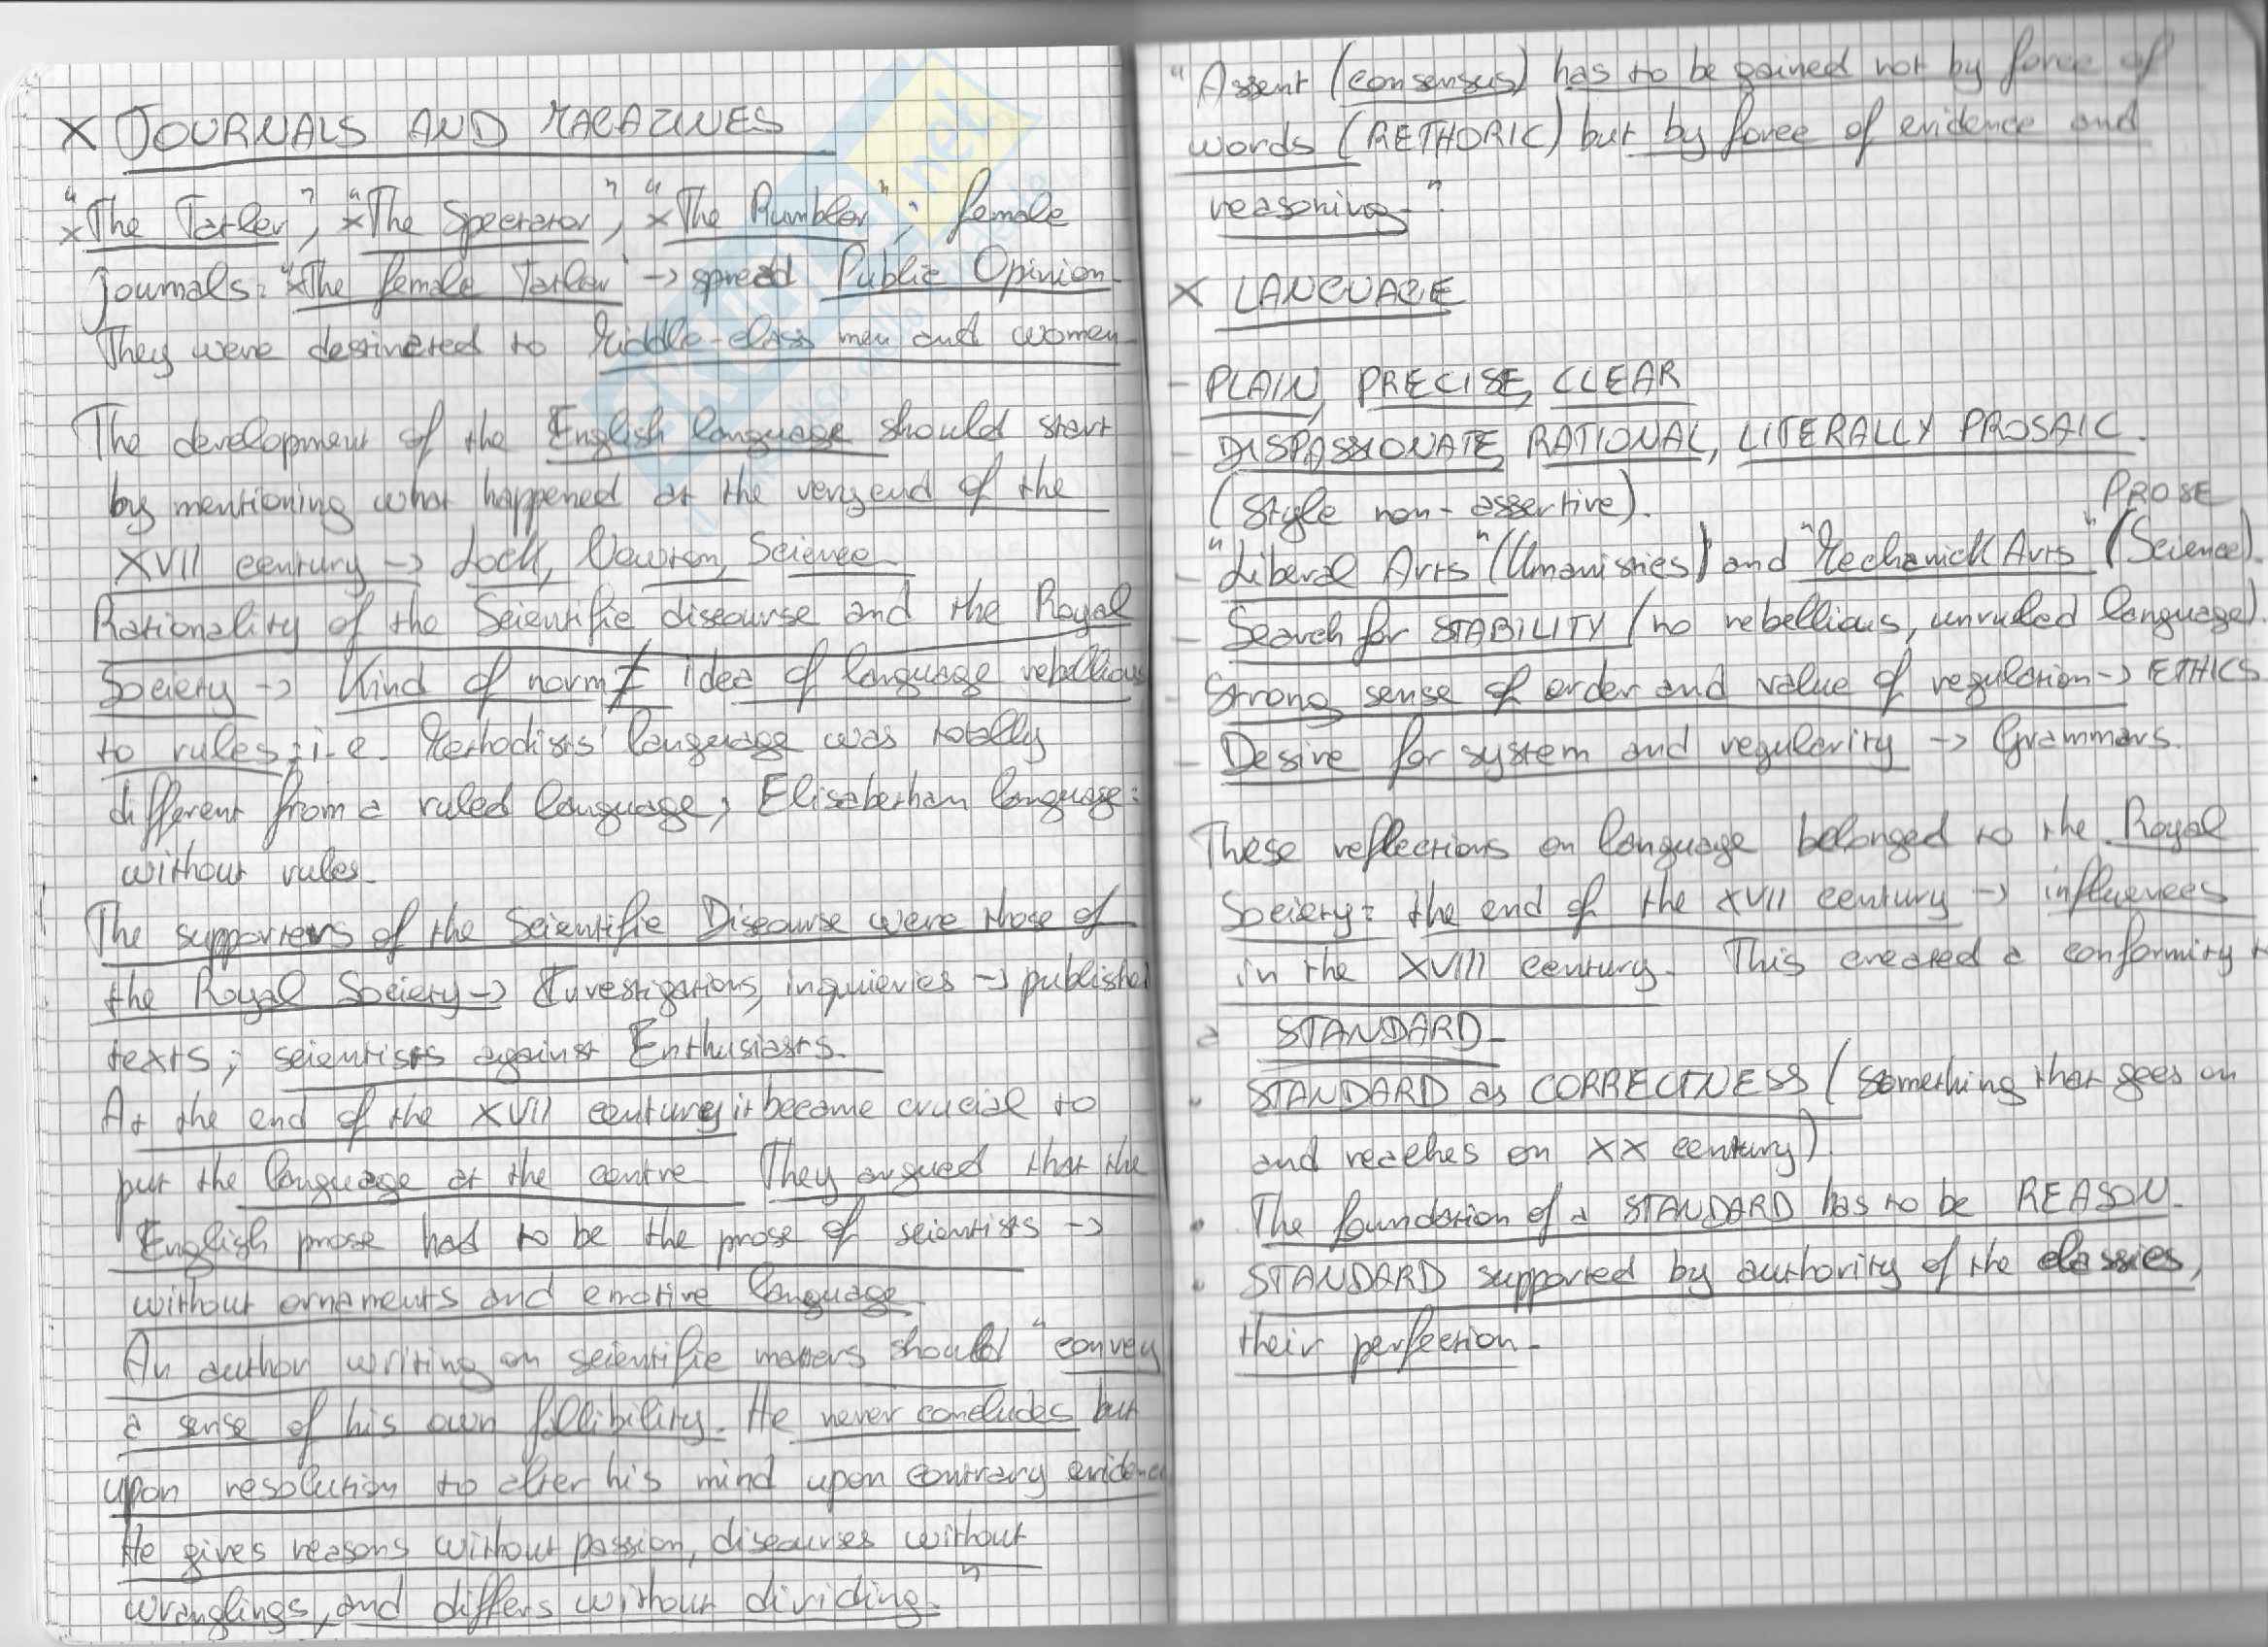 X JOURNALS AND MAGAZINES
x"The Tatler", x"The Spectator", x"The Rumbler"; female
journals: x"The female Tatler" -> spread Public Opinion.
They were destinated to Middle-class men and women
The development of the English language should start
by mentioning what happened at the very end of the
XVII century -> Lock, Newton, Science.
Rationality of the Scientific discourse and the Royal
Society -> Kind of norm ≠ idea of language rebellious
to rules: i.e. Methodists' language was totally
different from a ruled language; Elisabethan language:
without rules.
The supporters of the Scientific Discourse were those of
the Royal Society -> Investigations, inquieries -> published
texts; scientists against Enthusiasts.
At the end of the XVII century it became crucial to
put the language at the centre. They argued that the
English prose had to be the prose of scientists ->
without ornaments and emotive language.
An author writing on scientific matters should "convey
a sense of his own fallibility. He never concludes but
upon resolution to alter his mind upon contrary evidence
He gives reasons without passion, discourses without
wranglings, and differs without dividing."
"Assent (consensus) has to be gained not by force of
words (RETHORIC) but by force of evidence and
reasoning".
X LANGUAGE
- PLAIN, PRECISE, CLEAR
- DISPASSIONATE, RATIONAL, LITERALLY PROSAIC.
(Style non-assertive). PROSE
- "Liberal Arts" (Umanisties) and "Mechanick Arts" (Science).
- Search for STABILITY (no rebellious, unruled language).
- Strong sense of order and value of regulation -> ETHICS
- Desire for system and regularity -> Grammars.
These reflections on language belonged to the Royal
Society: the end of the XVII century -> influences
in the XVIII century. This created a conformity to
a STANDARD.
• STANDARD as CORRECTNESS (something that goes on
and reaches on XX century)
• The foundation of a STANDARD has to be REASON.
• STANDARD supported by authority of the classics,
their perfection.